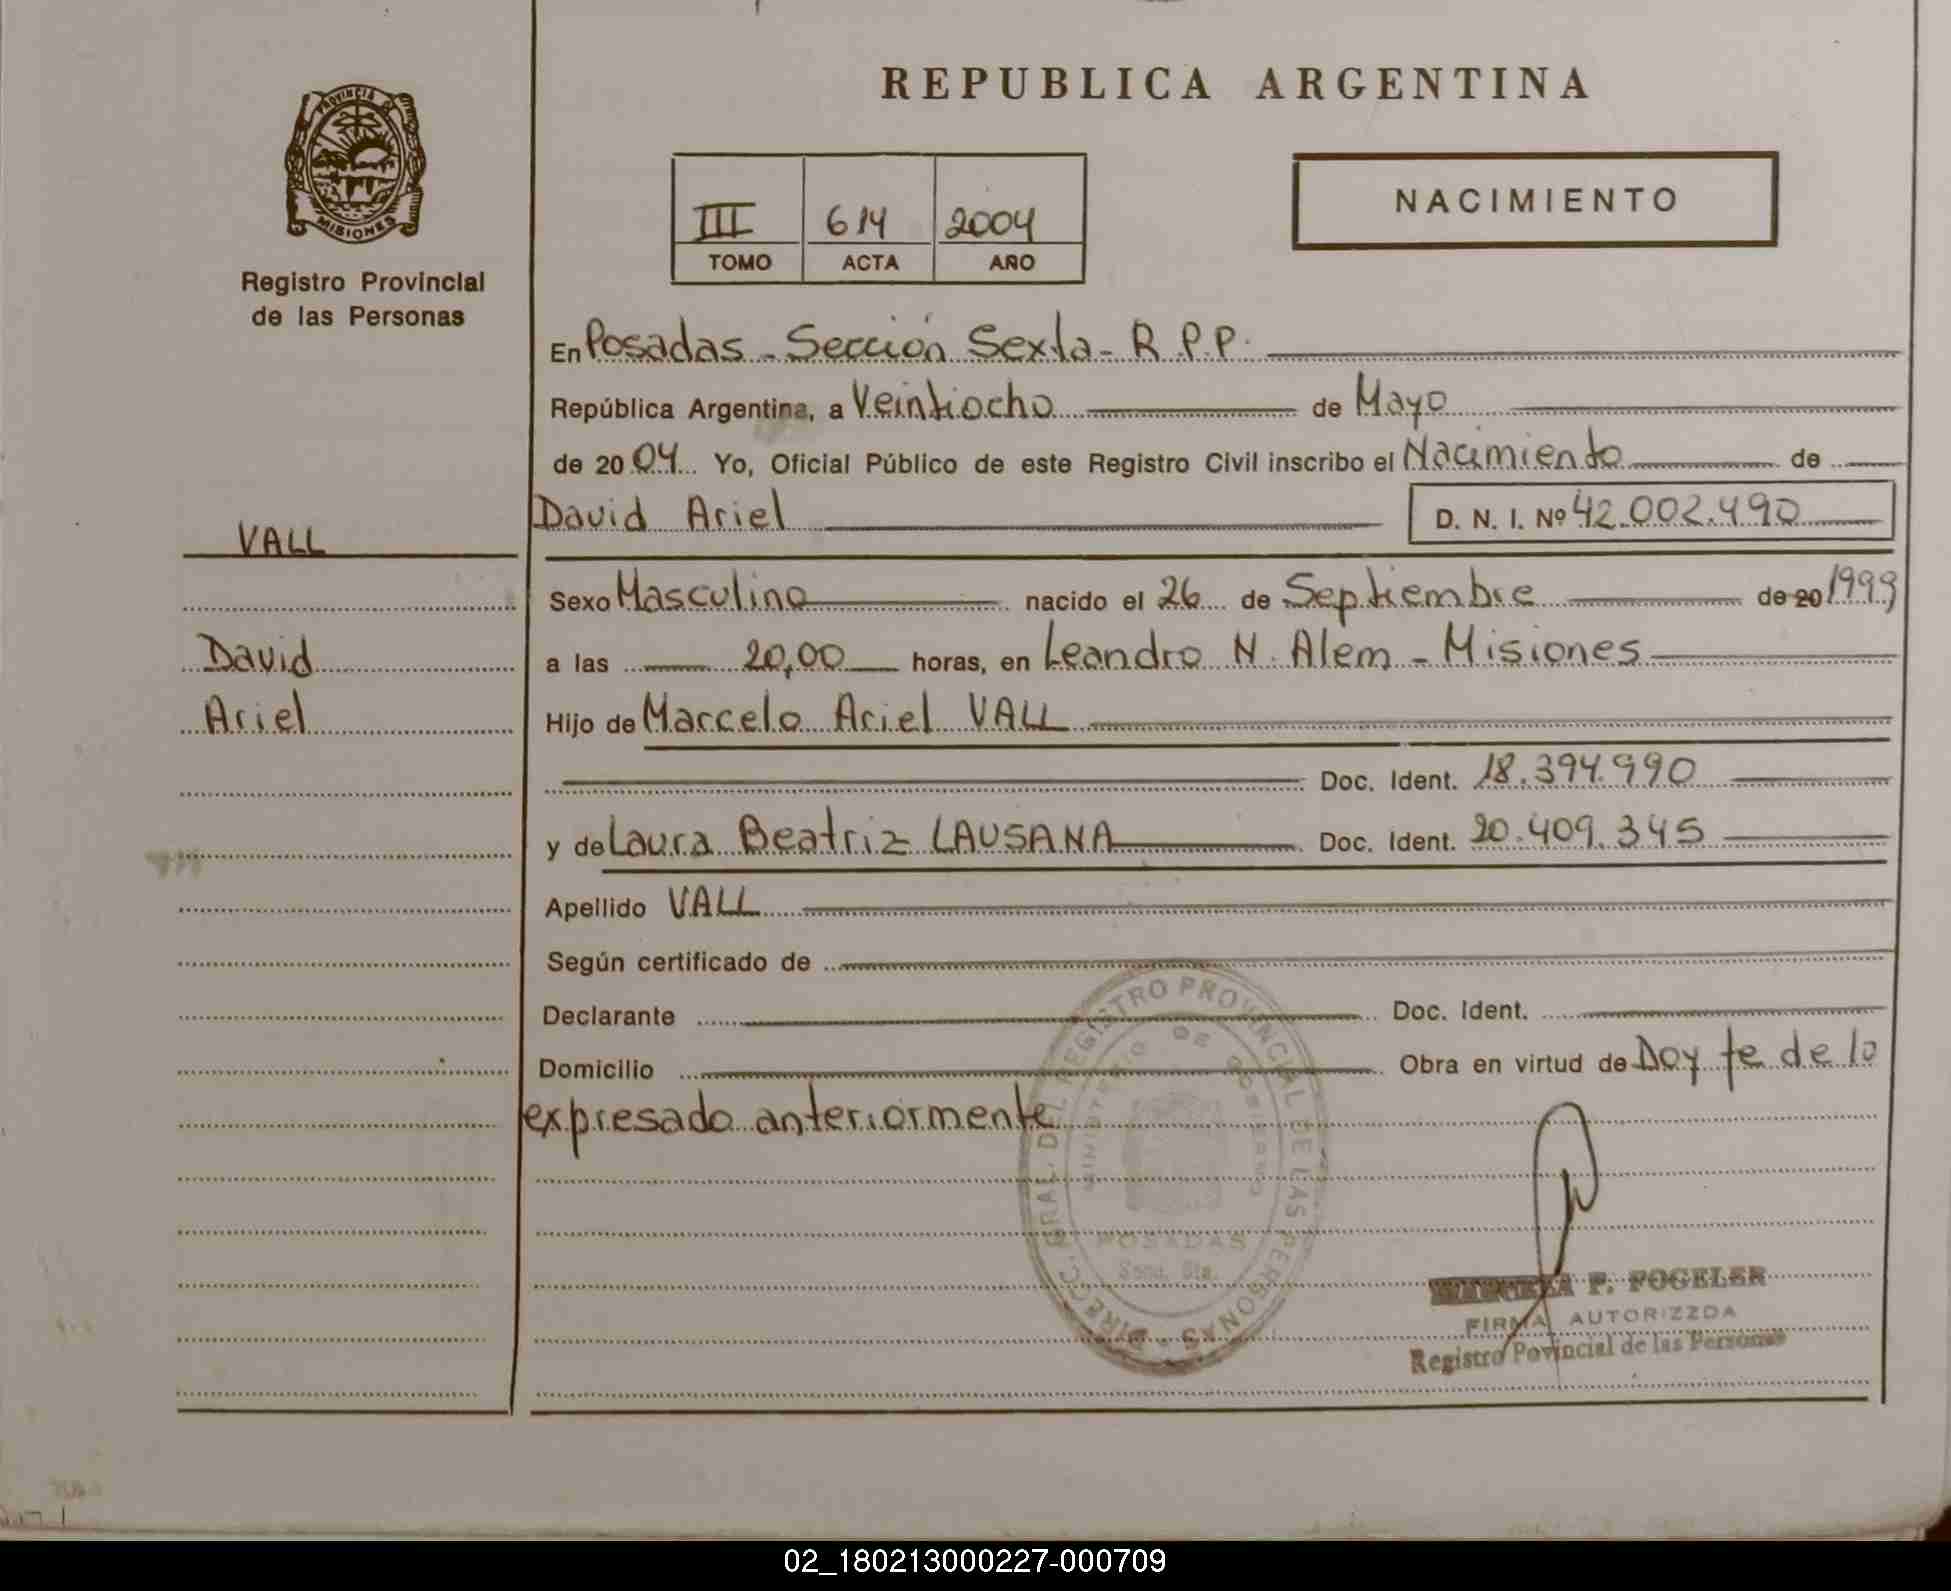 REPUBLICA ARGENTINA
PROVINCIA DE
MISIONES
Registro Provincial
de las Personas
III 614 2004
TOMO ACTA AÑO
NACIMIENTO
En Posadas - Sección Sexta - R.P.P.
República Argentina, a Veintiocho de Mayo
de 2004 Yo, Oficial Público de este Registro Civil inscribo el Nacimiento de
David Ariel D. N. I. Nº 42.002.490
VALL
Sexo Masculino nacido el 26 de Septiembre de 20 1999
David
a las 20,00 horas, en Leandro N. Alem - Misiones
Ariel
Hijo de Marcelo Ariel VALL
Doc. Ident. 18.394.990
y de Laura Beatriz LAUSANA Doc. Ident. 20.409.345
Apellido VALL
Según certificado de
Declarante Doc. Ident.
Domicilio Obra en virtud de Doy fe de lo
expresado anteriormente
DIRECC. GRAL. DEL REGISTRO PROVINCIAL DE LAS PERSONAS
MINISTERIO DE GOBIERNO
POSADAS
Secc. 6ta.
P. FOGELER
FIRMA AUTORIZZDA
Registro Povincial de las Personas
02_180213000227-000709